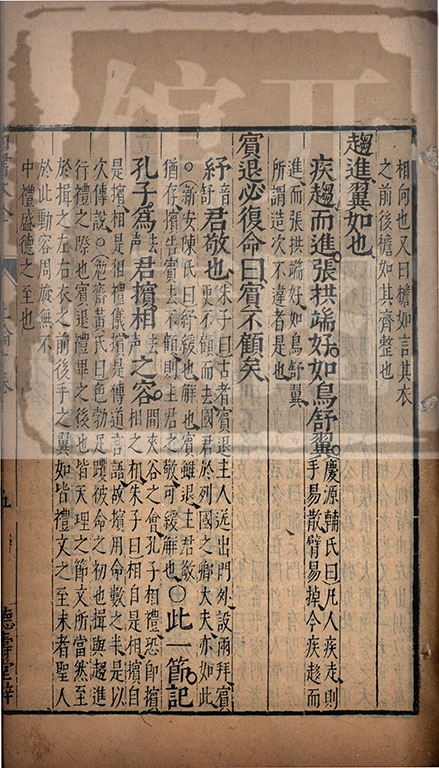 相向也又曰襜如言其衣
之前後襜如其齊整也
趨進翼如也
疾趨而進張拱端好如鳥舒翼
慶源輔氏曰凡人疾走則
手易散臂易掉今疾趨而
進而張拱端好如鳥舒翼
所謂造次不違者是也
賓退必復命曰賓不顧矣
紓音舒君敬也
朱子曰古者賓退主人送出門外設兩拜賓
更不顧而去國君於列國之卿大夫亦如此
○新安陳氏曰紓緩也解也賓雖退主君敬
猶存擯告賓去不顧則主君之敬可緩解也
○此一節記
孔子為去聲君擯相去聲之容
問夾谷之會孔子相禮恐即擯
相之相朱子曰相自是相擯自
是擯相是相禮儀擯是傳道言語故擯用命數之半是以
次傳說○勉齋黃氏曰色勃足躩被命之初也揖與趨進
行禮之際也賓退禮畢之後也皆天理之節文所當然至
於揖之左右衣之前後手之翼如皆禮文之至末者聖人
於此動容周旋無不
中禮盛德之至也
五
德壽堂梓